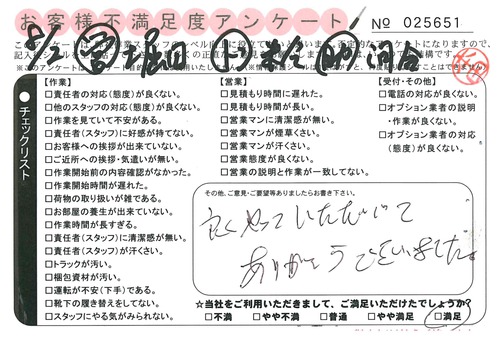 お客様不満足度アンケート
No 025651
チェックリスト
【作業】
□責任者の対応(態度)が良くない。
□他のスタッフの対応(態度)が良くない。
□作業を見ていて不安がある。
□責任者(スタッフ)に好感が持てない。
□お客様への挨拶が出来ていない。
□ご近所への挨拶・気遣いが無い。
□作業開始前の内容確認がなかった。
□作業開始時間が遅れた。
□荷物の取り扱いが雑である。
□お部屋の養生が出来ていない。
□作業時間が長すぎる。
□責任者(スタッフ)に清潔感が無い。
□責任者(スタッフ)が汗くさい。
□トラックが汚い。
□梱包資材が汚い。
□運転が不安(下手)である。
□靴下の履き替えをしてない。
□スタッフにやる気がみられない。
【営業】
□見積もり時間に遅れた。
□見積もり時間が長い。
□営業マンに清潔感が無い。
□営業マンが煙草くさい。
□営業マンが汗くさい。
□営業態度が良くない。
□営業の説明と作業が一致してない。
【受付・その他】
□電話の対応が良くない。
□オプション業者の説明
・作業が良くない。
□オプション業者の対応
(態度)が良くない。
その他、ご意見・ご要望等ありましたらお書き下さい。
良くやっていただいて
ありがとうございました。
☆当社をご利用いただきまして、ご満足いただけたでしょうか?
□不満 □やや不満 □普通 □やや満足 □満足